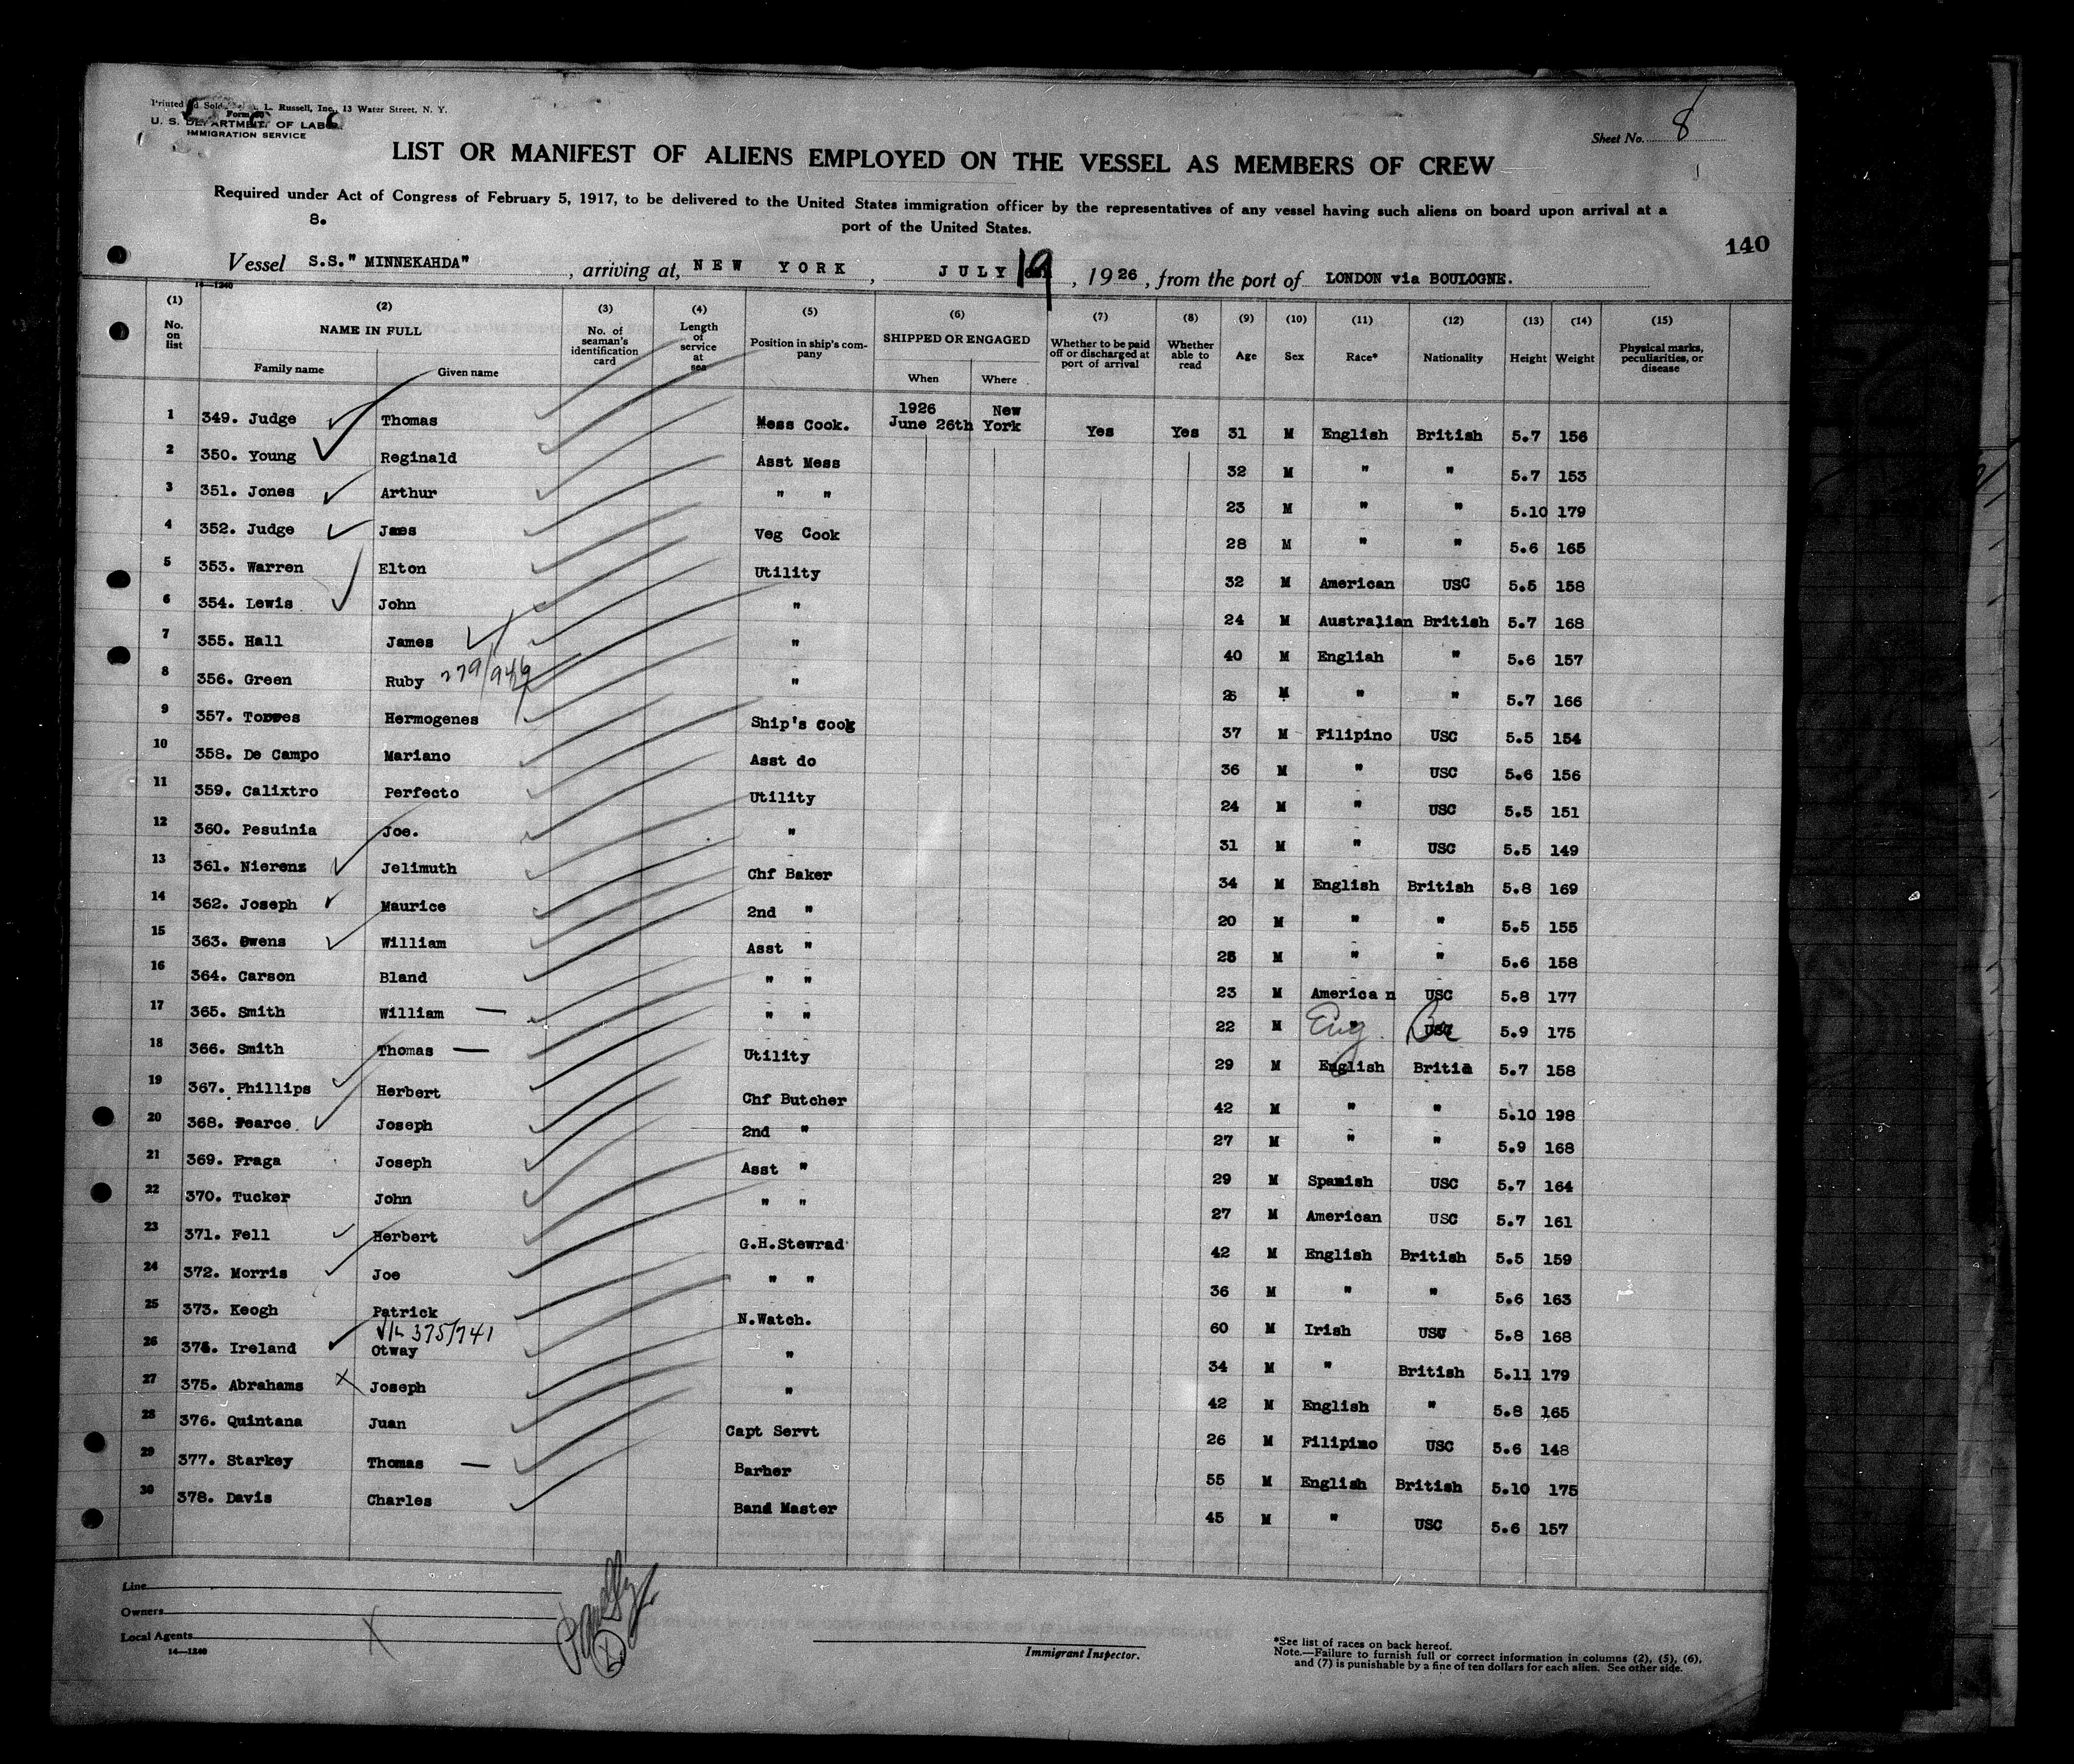 Printed and Sold L. Russell, Inc., 13 Water Street, N. Y.
U. S. DEPARTMENT OF LABOR
IMMIGRATION SERVICE
Sheet No. 8
LIST OR MANIFEST OF ALIENS EMPLOYED ON THE VESSEL AS MEMBERS OF CREW
Required under Act of Congress of February 5, 1917, to be delivered to the United States immigration officer by the representatives of any vessel having such aliens on board upon arrival at a
8.
port of the United States.
140
Vessel S.S." MINNEKAHDA" , arriving at, NEW YORK , JULY 19 , 1926 , from the port of LONDON via BOULOGNE.
14—1240
(1) (2) (3) (4) (5) (6) (7) (8) (9) (10) (11) (12) (13) (14) (15)
No. on list NAME IN FULL Family name Given name No. of seaman's identification card Length of service at sea Position in ship's company SHIPPED OR ENGAGED When Where Whether to be paid off or discharged at port of arrival Whether able to read Age Sex Race* Nationality Height Weight Physical marks, peculiarities, or disease
1 349. Judge Thomas Mess Cook. 1926 June 26th New York Yes Yes 31 M English British 5.7 156
2 350. Young Reginald Asst Mess 32 M " " 5.7 153
3 351. Jones Arthur " " 23 M " " 5.10 179
4 352. Judge Jaes Veg Cook 28 M " " 5.6 165
5 353. Warren Elton Utility 32 M American USC 5.5 158
6 354. Lewis John " 24 M Australian British 5.7 168
7 355. Hall James " 40 M English " 5.6 157
8 356. Green Ruby 279/949 " 26 M " " 5.7 166
9 357. Torres Hermogenes Ship's Cook 37 M Filipino USC 5.5 154
10 358. De Campo Mariano Asst do 36 M " USC 5.6 156
11 359. Calixtro Perfecto Utility 24 M " USC 5.5 151
12 360. Pesuinia Joe. " 31 M " USC 5.5 149
13 361. Nierenz Jelimuth Chf Baker 34 M English British 5.8 169
14 362. Joseph Maurice 2nd " 20 M " " 5.5 155
15 363. Owens William Asst " 28 M " " 5.6 158
16 364. Carson Bland " " 23 M America n USC 5.8 177
17 365. Smith William — " " 22 M Eng. USC Br 5.9 175
18 366. Smith Thomas — Utility 29 M English Britis 5.7 158
19 367. Phillips Herbert Chf Butcher 42 M " " 5.10 198
20 368. Pearce Joseph 2nd " 27 M " " 5.9 168
21 369. Fraga Joseph Asst " 29 M Spanish USC 5.7 164
22 370. Tucker John " " 27 M American USC 5.7 161
23 371. Fell Herbert G.H.Stewrad 42 M English British 5.5 159
24 372. Morris Joe " " 36 M " " 5.6 163
25 373. Keogh Patrick N.Watch. 60 M Irish USC 5.8 168
375/741
26 374. Ireland Otway " 34 M " British 5.11 179
27 375. Abrahams X Joseph " 42 M English " 5.8 165
28 376. Quintana Juan Capt Servt 26 M Filipino USC 5.6 148
29 377. Starkey Thomas — Barber 55 M English British 5.10 175
30 378. Davis Charles Band Master 45 M " USC 5.6 157
Line
Owners
Local Agents X
14—1240
Immigrant Inspector.
*See list of races on back hereof.
Note.—Failure to furnish full or correct information in columns (2), (5), (6),
and (7) is punishable by a fine of ten dollars for each alien. See other side.